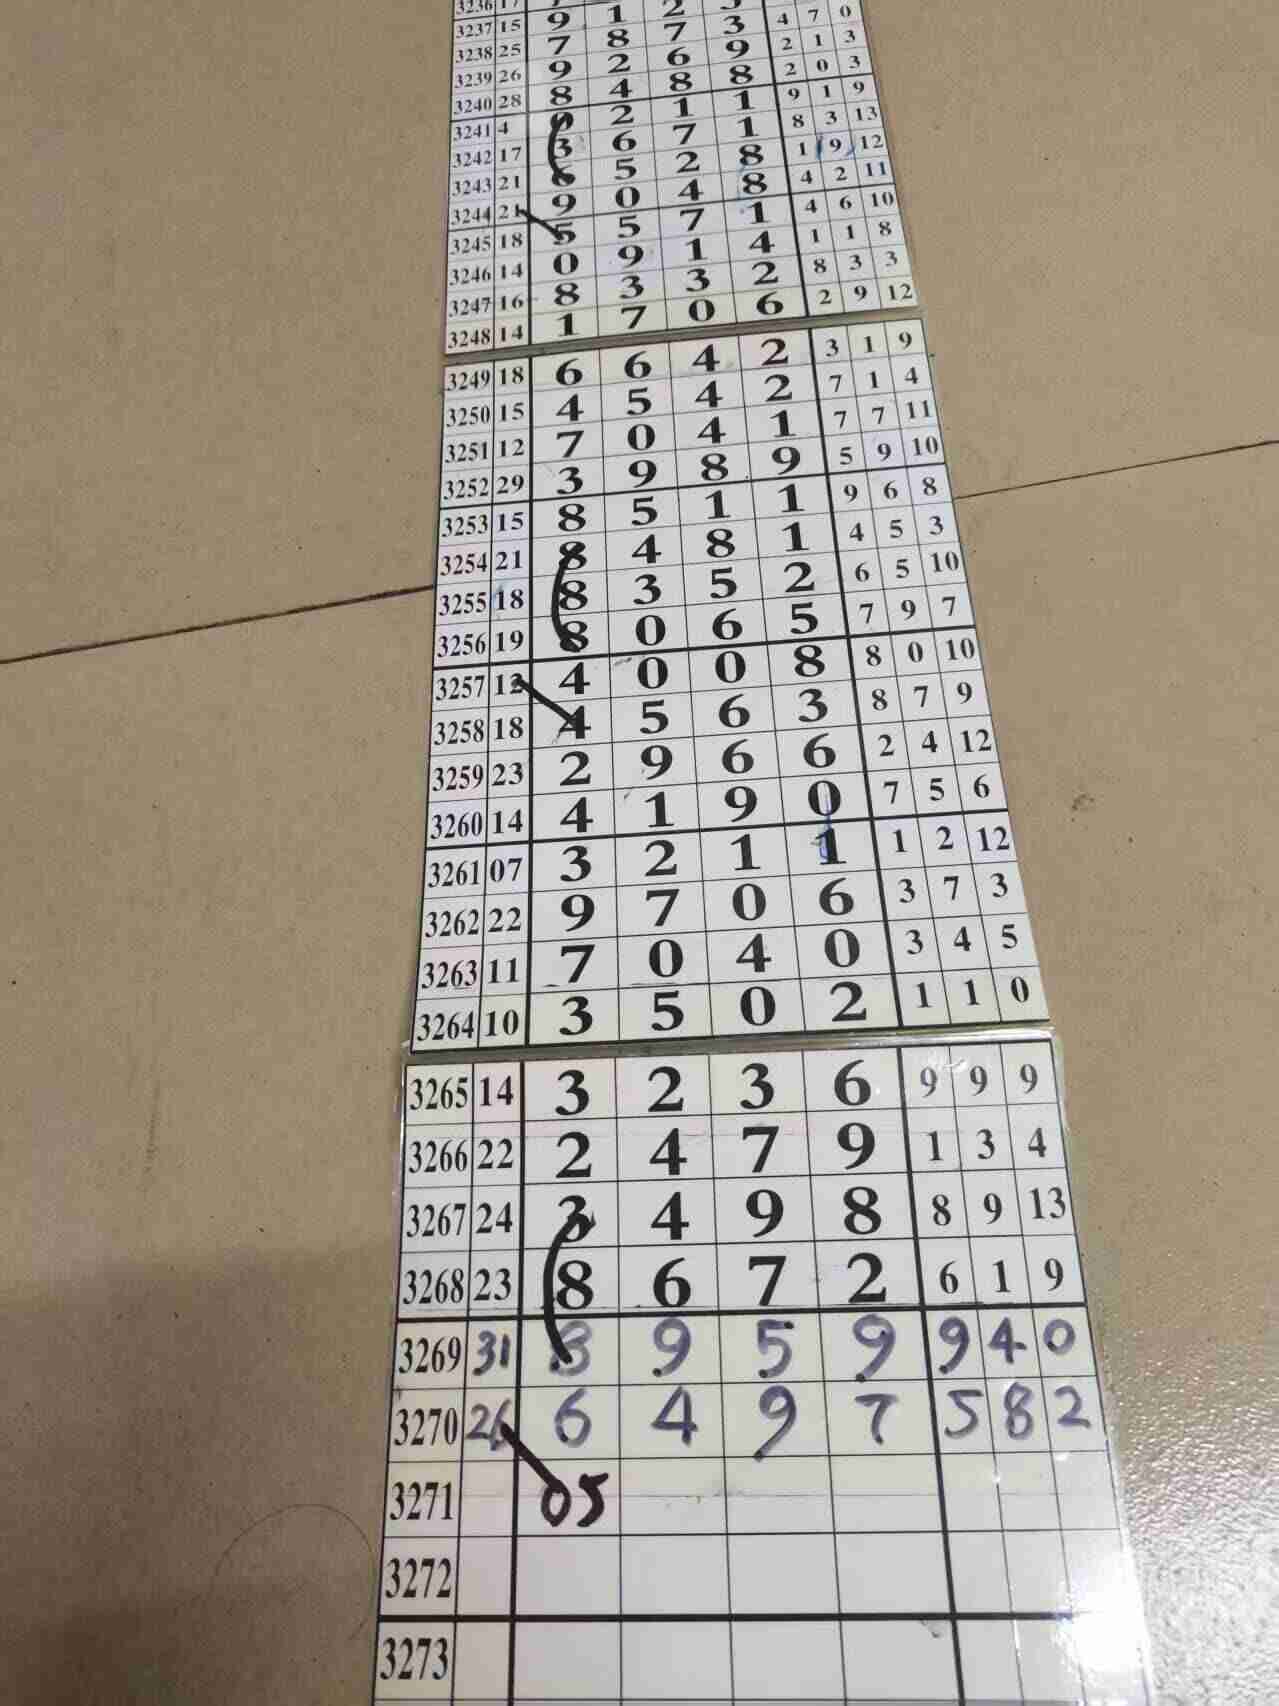 3237 15 9 1 2 3 4 7 0
3238 25 7 8 7 3 2 1 3
3239 26 9 2 6 9 2 0 3
3240 28 8 4 8 8 9 1 9
3241 4 2 1 1 8 3 13
3242 17 3 6 7 1 1 9 12
3243 21 6 5 2 8 4 2 11
3244 21 9 0 4 8 4 6 10
3245 18 5 5 7 1 1 1 8
3246 14 0 9 1 4 8 3 3
3247 16 8 3 3 2 2 9 12
3248 14 1 7 0 6
3249 18 6 6 4 2 3 1 9
3250 15 4 5 4 2 7 1 4
3251 12 7 0 4 1 7 7 11
3252 29 3 9 8 9 5 9 10
3253 15 8 5 1 1 9 6 8
3254 21 8 4 8 1 4 5 3
3255 18 8 3 5 2 6 5 10
3256 19 8 0 6 5 7 9 7
3257 12 4 0 0 8 8 0 10
3258 18 4 5 6 3 8 7 9
3259 23 2 9 6 6 2 4 12
3260 14 4 1 9 0 7 5 6
3261 07 3 2 1 1 1 2 12
3262 22 9 7 0 6 3 7 3
3263 11 7 0 4 0 3 4 5
3264 10 3 5 0 2 1 1 0
3265 14 3 2 3 6 9 9 9
3266 22 2 4 7 9 1 3 4
3267 24 3 4 9 8 8 9 13
3268 23 8 6 7 2 6 1 9
3269 31 8 9 5 9 9 4 0
3270 26 6 4 9 7 5 8 2
3271 05
3272
3273